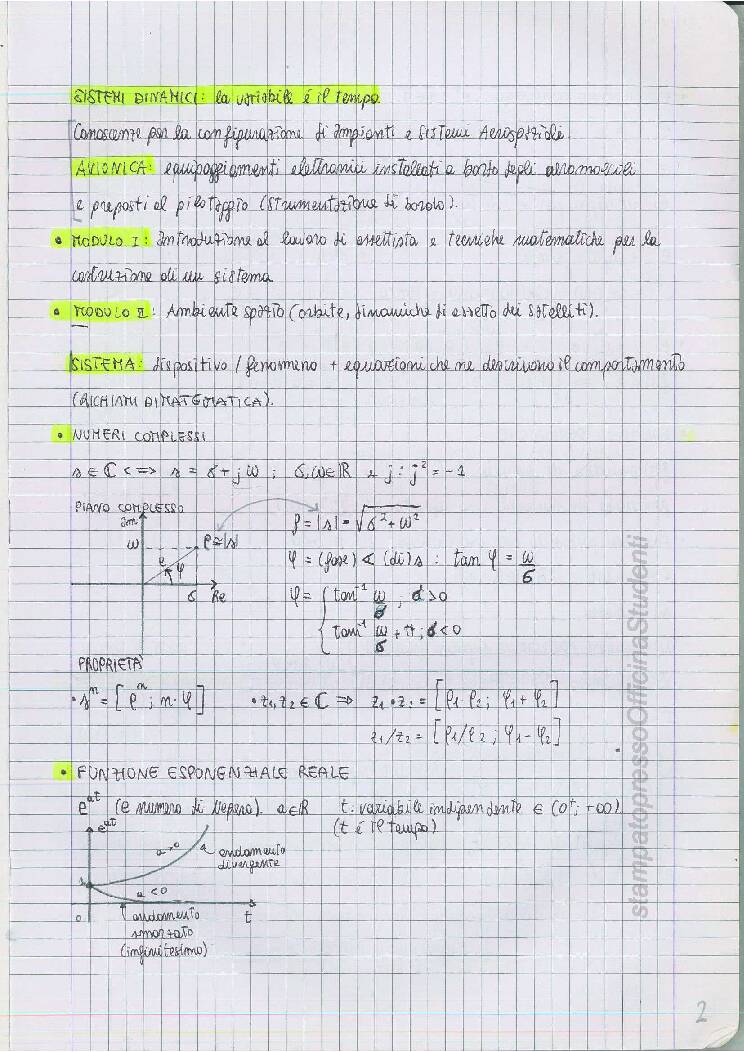 SISTEMI DINAMICI: la variabile é il tempo.
Conoscenze per la configurazione di Impianti e Sistemi Aerospaziali.
AVIONICA: equipaggiamenti elettronici installati a bordo degli aeromobili
e preposti al pilotaggio (strumentazione di bordo).
• MODULO I: Introduzione al lavoro di assettista e tecniche matematiche per la
costruzione di un sistema
• MODULO II: Ambiente spazio (orbite, dinamiche di assetto dei satelliti).
SISTEMA: dispositivo / fenomeno + equazioni che ne descrivono il comportamento
(RICHIAMI DI MATEMATICA).
• NUMERI COMPLESSI
s ∈ ℂ <=> s = σ + jω ; σ,ω ∈ ℝ e j : j² = -1
PIANO COMPLESSO
Im
ω
ρ=|s|
ρ
φ
σ
Re
ρ = |s| = √(σ² + ω²)
φ = (fase) ∢ (di) s : tan φ = ω/σ
φ = { tan⁻¹ ω/σ ; σ>0
tan⁻¹ ω/σ + π ; σ<0
PROPRIETÀ
• sⁿ = [ρⁿ ; n·φ] • z₁,z₂ ∈ ℂ => z₁•z₂ = [ρ₁·ρ₂ ; φ₁+φ₂]
z₁/z₂ = [ρ₁/ρ₂ ; φ₁-φ₂]
• FUNZIONE ESPONENZIALE REALE
e^at (e numero di Nepero). a∈ℝ t: variabile indipendente ∈ (0⁺; +∞)
(t é il tempo)
e^at
a>0
andamento
divergente
1
a<0
0
t
andamento
smorzato
(infinitesimo)
stampatopressoOfficinaStudenti
2